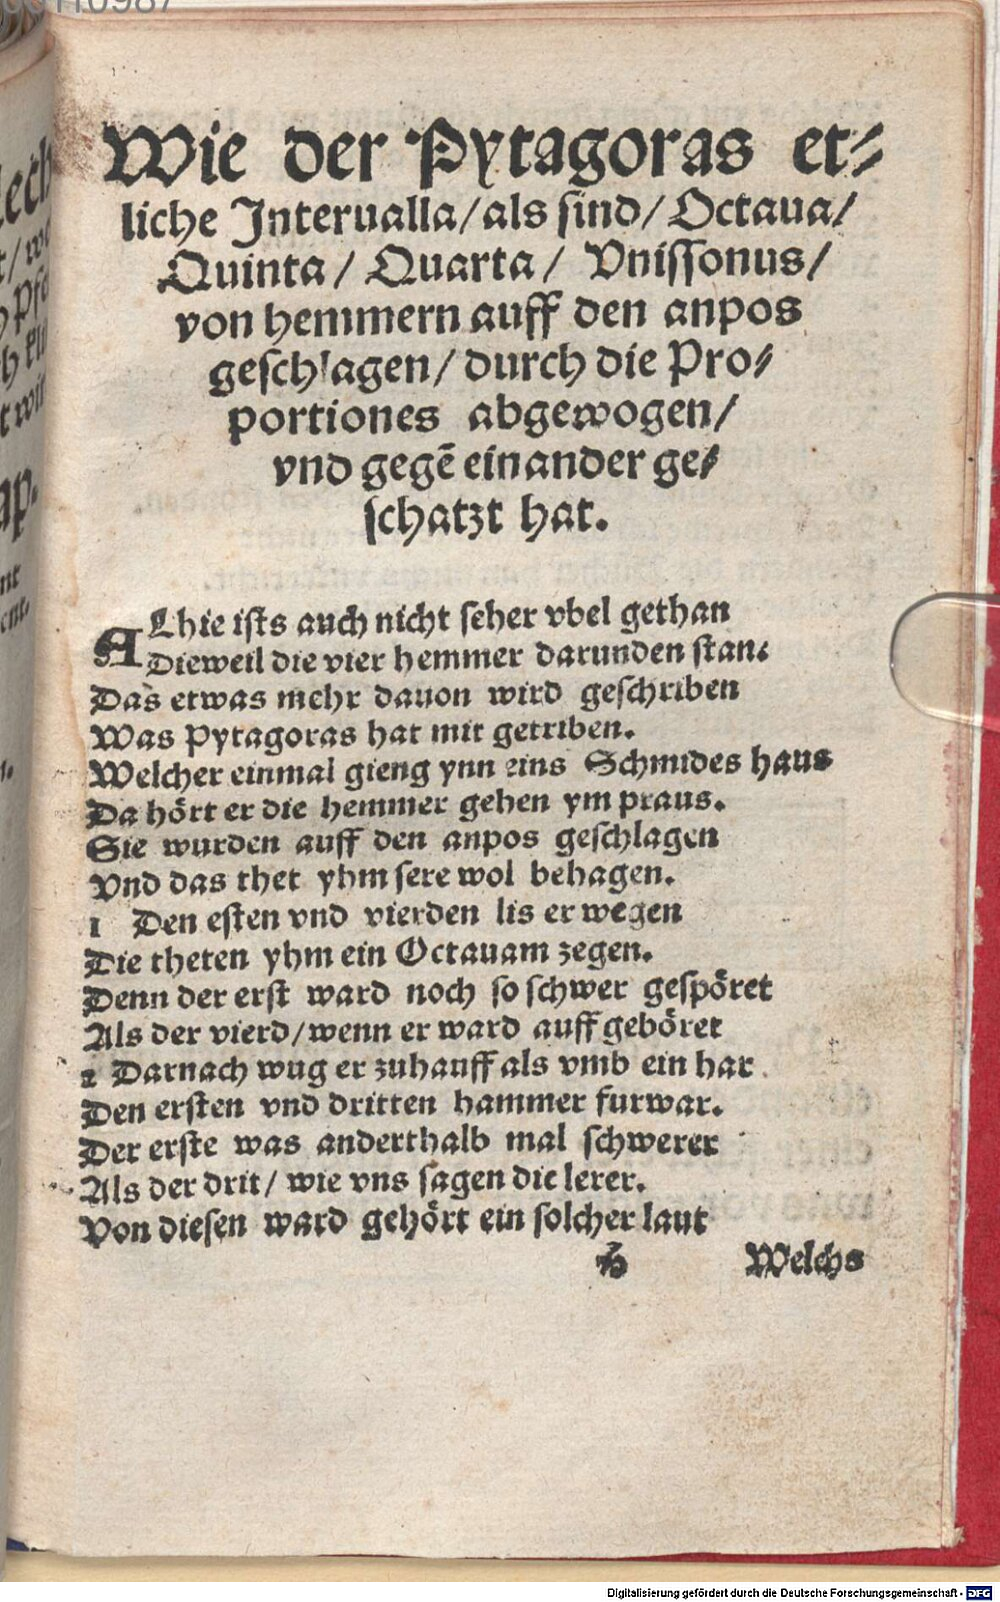 Wie der Pytagoras et⸗
liche Interualla/ als sind/ Octaua/
Quinta/ Quarta/ Vnissonus/
von hemmern auff den anpos
geschlagen/ durch die Pro⸗
portiones abgewogen/
vnd gegē einander ge⸗
schatzt hat.
ALhie ists auch nicht seher vbel gethan
Dieweil die vier hemmer darunden stan.
Das etwas mehr dauon wird geschriben
Was Pytagoras hat mit getriben.
Welcher einmal gieng ynn eins Schmides haus
Da hört er die hemmer gehen ym praus.
Sie wurden auff den anpos geschlagen
Vnd das thet yhm sere wol behagen.
1 Den esten vnd vierden lis er wegen
Die theten yhm ein Octauam zegen.
Denn der erst ward noch so schwer gespöret
Als der vierd/ wenn er ward auff gehöret
2 Darnach wug er zuhauff als vmb ein har
Den ersten vnd dritten hammer furwar.
Der erste was anderthalb mal schwerer
Als der drit/ wie vns sagen die lerer.
Von diesen ward gehört ein solcher laut
H Welchs
Digitalisierung gefördert durch die Deutsche Forschungsgemeinschaft - DFG